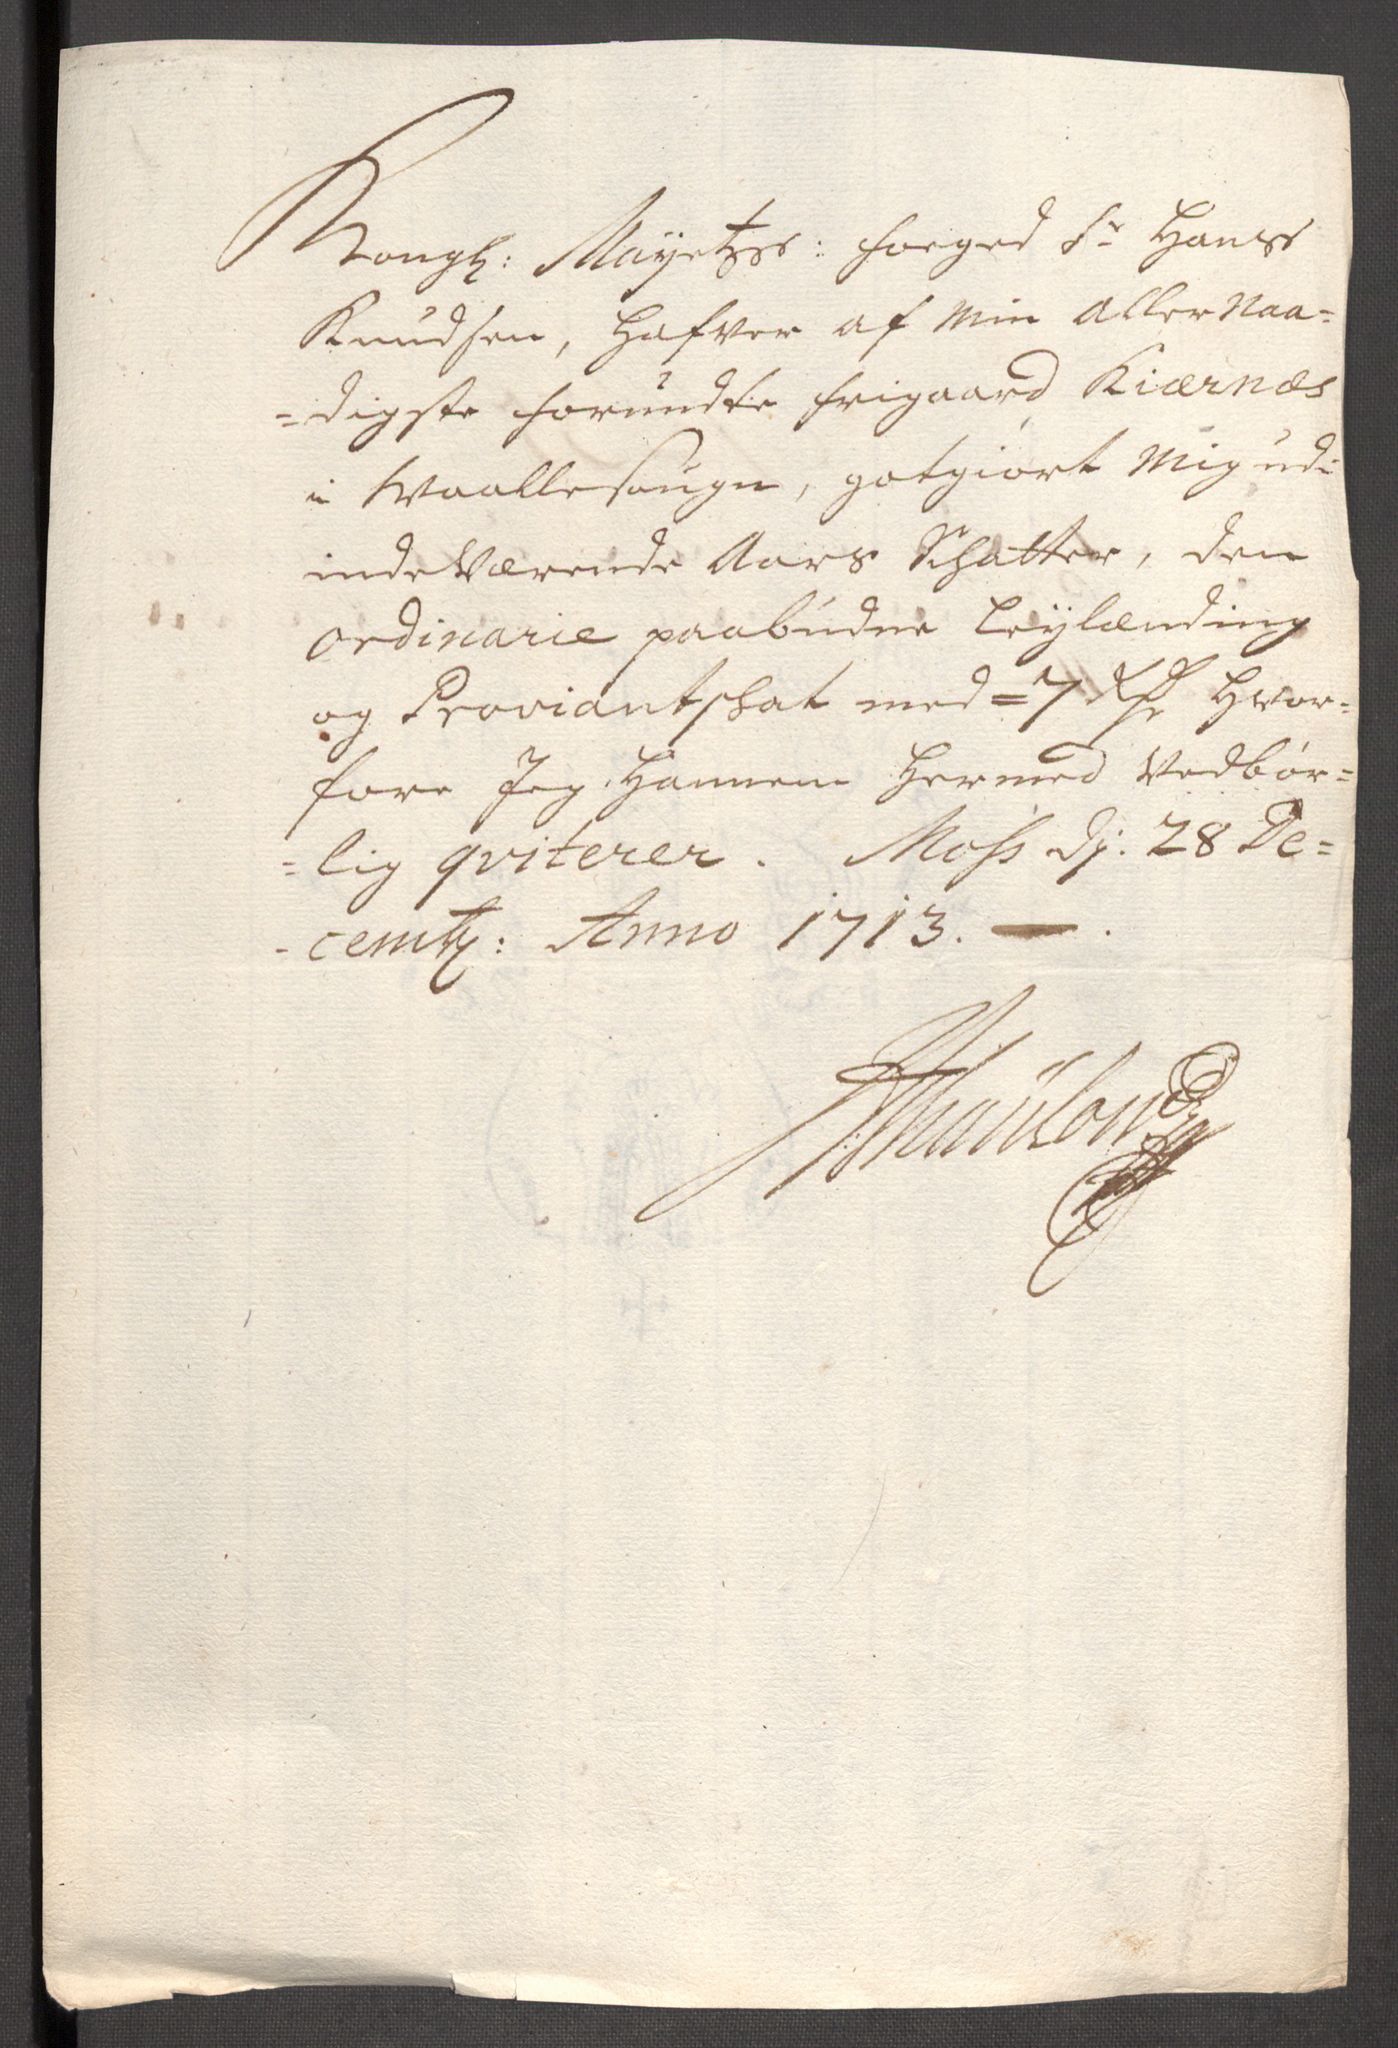 Kongl: Mayetzss: foeged Sr Hanss
Knudsen, hafver af min aller naa-
=digste forundte frigaard Kiærnæs
i Waallesougn, gotgiort mig udi
indeværende Aars Schatter, den
ordinarie paabudne Leylænding
og Proviantskat med =7 Rdr hvor=
fore Jeg hannem hermed vedbør=
=lig qviterer. Moss dj: 28 De=
-cembr: Anno 1713. —.
Thaulow